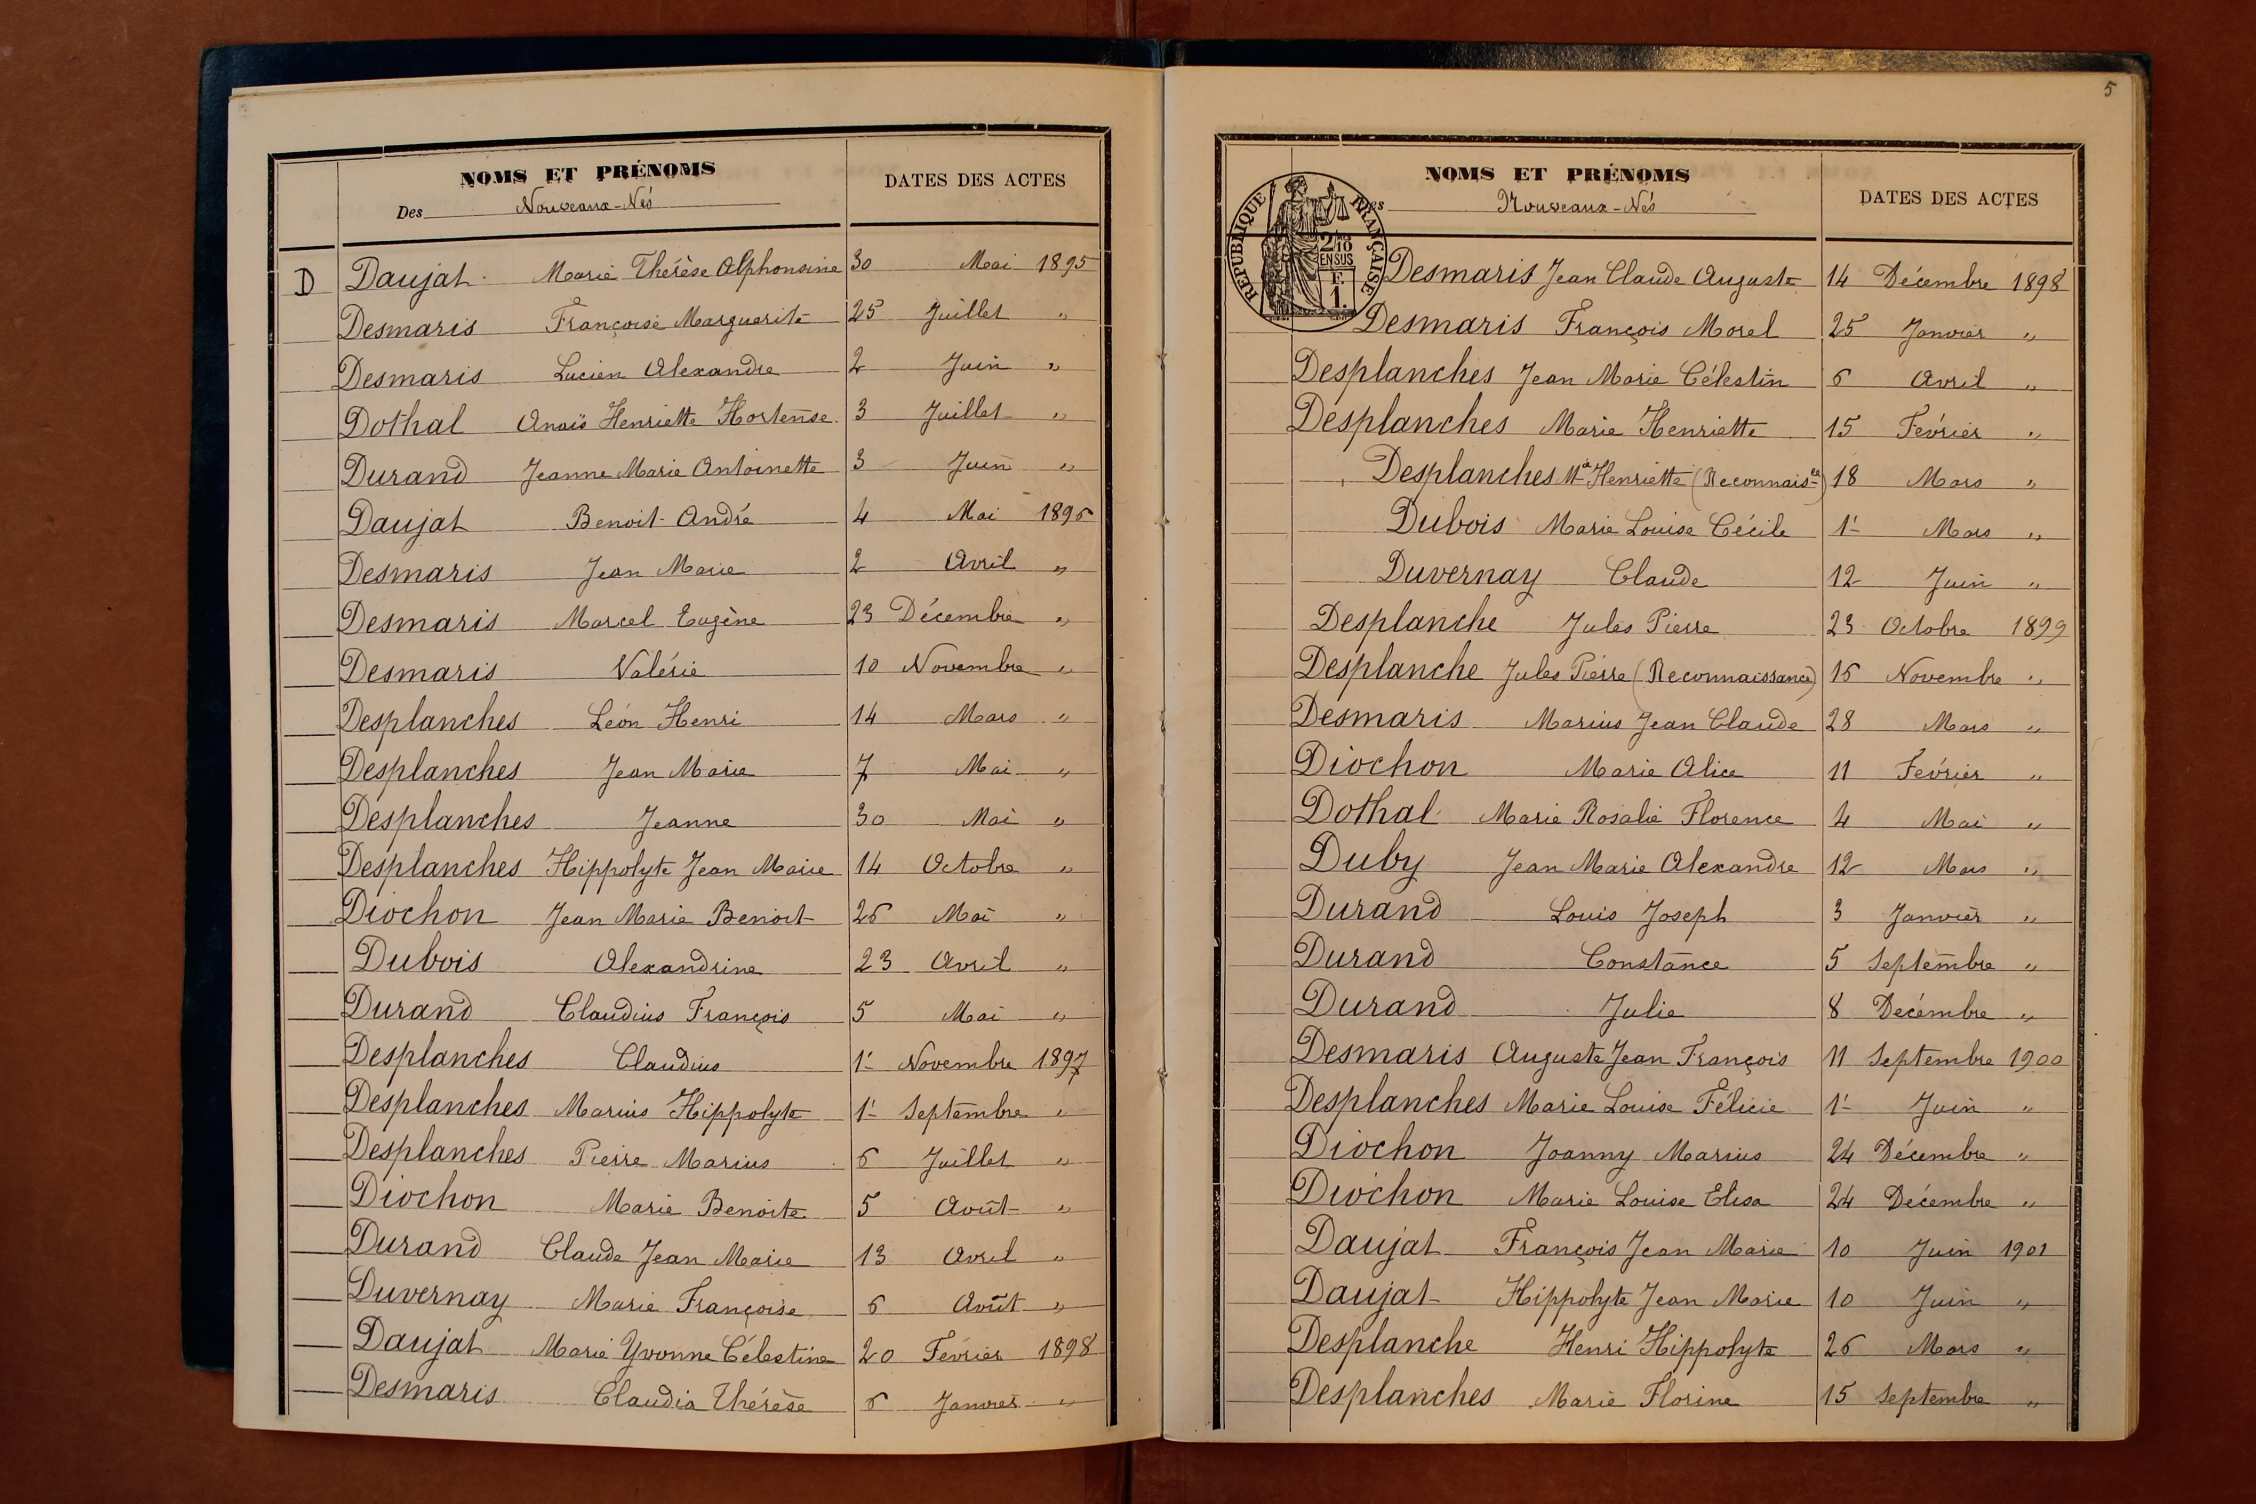 NOMS ET PRÉNOMS
DATES DES ACTES
Des Nouveaux-Nés
D Daujat Marie Thérèse Alphonsine 30 Mai 1895
Desmaris Françoise Marguerite 25 Juillet "
Desmaris Lucien Alexandre 2 Juin "
Dothal Anaïs Henriette Hortense 3 Juillet "
Durand Jeanne Marie Antoinette 3 Juin "
Daujat Benoit André 4 Mai 1896
Desmaris Jean Marie 2 Avril "
Desmaris Marcel Eugène 23 Décembre "
Desmaris Valérie 10 Novembre "
Desplanches Léon Henri 14 Mars "
Desplanches Jean Marie 7 Mai "
Desplanches Jeanne 30 Mai "
Desplanches Hippolyte Jean Marie 14 Octobre "
Diochon Jean Marie Benoit 26 Mai "
Dubois Alexandrine 23 Avril "
Durand Claudius François 5 Mai "
Desplanches Claudius 1er Novembre 1897
Desplanches Marius Hippolyte 1er Septembre "
Desplanches Pierre Marius 6 Juillet "
Diochon Marie Benoite 5 Août "
Durand Claude Jean Marie 13 Avril "
Duvernay Marie Françoise 6 Août "
Daujat Marie Yvonne Célestine 20 Février 1898
Desmaris Claudia Thérèse 6 Janvier "
5
NOMS ET PRÉNOMS
DATES DES ACTES
Des Nouveaux-Nés
RÉPUBLIQUE FRANÇAISE
2/10
EN SUS
F.
1.
Desmaris Jean Claude Auguste 14 Décembre 1898
Desmaris François Morel 25 Janvier "
Desplanches Jean Marie Célestin 6 Avril "
Desplanches Marie Henriette 15 Février "
Desplanches Mie Henriette (Reconnaisce) 18 Mars "
Dubois Marie Louise Cécile 1er Mars "
Duvernay Claude 12 Juin "
Desplanche Jules Pierre 23 Octobre 1899
Desplanche Jules Pierre (Reconnaissance) 16 Novembre "
Desmaris Marius Jean Claude 28 Mars "
Diochon Marie Alice 11 Février "
Dothal Marie Rosalie Florence 4 Mai "
Duby Jean Marie Alexandre 12 Mars "
Durand Louis Joseph 3 Janvier "
Durand Constance 5 Septembre "
Durand Julie 8 Décembre "
Desmaris Auguste Jean François 11 Septembre 1900
Desplanches Marie Louise Félicie 1er Juin "
Diochon Joanny Marius 24 Décembre "
Diochon Marie Louise Elisa 24 Décembre "
Daujat François Jean Marie 10 Juin 1901
Daujat Hippolyte Jean Marie 10 Juin "
Desplanche Henri Hippolyte 26 Mars "
Desplanches Marie Florine 15 Septembre "